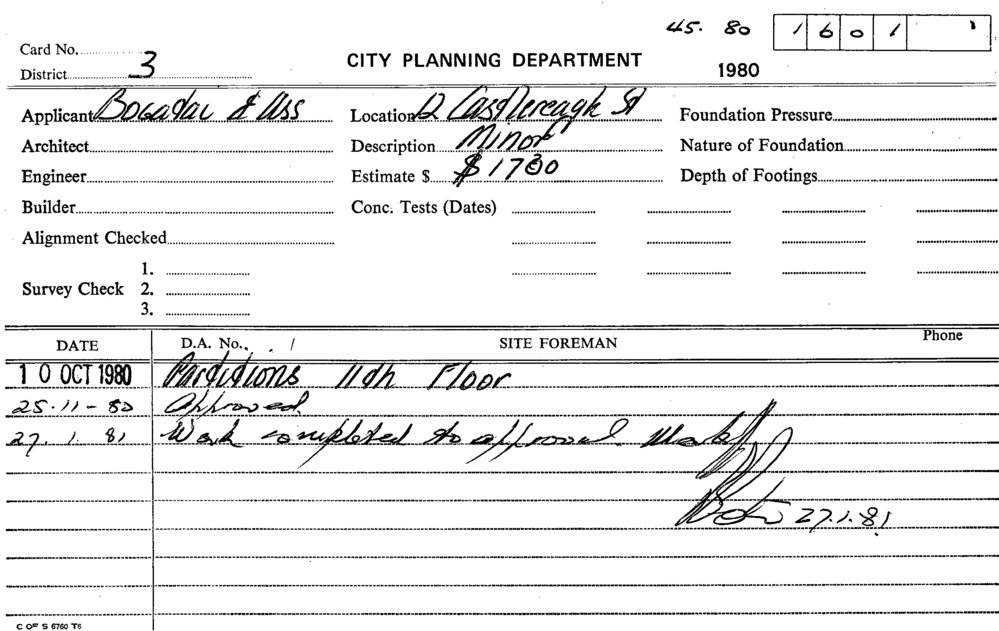 45. 80 1601
Card No.
District 3
CITY PLANNING DEPARTMENT
1980
Applicant Bogadar & Ass
Location 12 Castlereagh St
Foundation Pressure
Architect
Description Minor
Nature of Foundation
Engineer
Estimate $ $1730
Depth of Footings
Builder
Conc. Tests (Dates)
Alignment Checked
Survey Check 1.
2.
3.
DATE D.A. No. / SITE FOREMAN Phone
10 OCT 1980 Partitions 11th Floor
25.11-80 Approved.
27.1.81 Work completed to approval.
27.1.81
C OF S 6760 T6